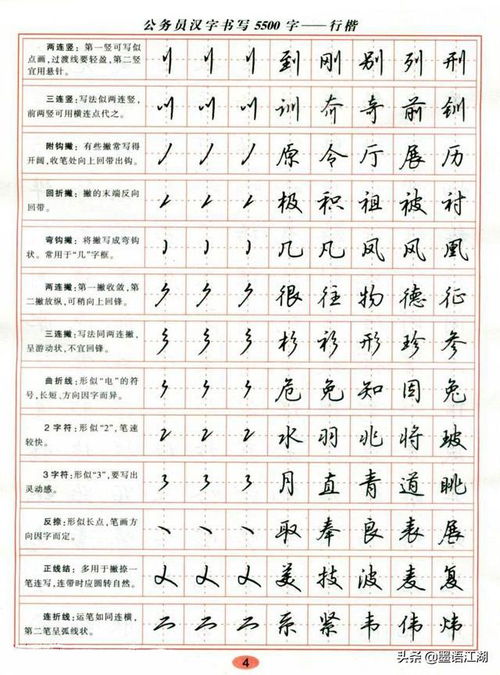 公务员汉字书写5500字——行楷
两连竖：第一竖可写似
点画，过渡线要轻盈，第二竖
宜用悬针。
到 刚 别 列 刑
三连竖：写法似两连竖，
前两竖可用横连点代之。
训 奔 奇 前 钏
附钩撇：有些撇常写得
开阔，收笔处向上回带出钩。
原 令 厅 展 历
回折撇：撇的末端反向
回带。
极 积 祖 被 衬
弯钩撇：将撇写成弯钩
状。常用于“几”字框。
几 凡 凤 风 凰
两连撇：第一撇收敛，第
二撇放纵，可稍向上回锋。
很 往 物 德 征
三连撇：写法同两连撇，
呈游动状，不宜回锋。
杉 衫 形 珍 参
曲折线：形似“电”的符
号，长短、方向因字而异。
危 免 知 因 兔
2字符：形似“2”，笔速
较快。
水 羽 兆 将 玻
3字符：形似“3”，要写出
灵动感。
月 直 青 道 眺
反捺：形似长点，笔画方
向因字而定。
取 奉 良 表 展
正线结：多用于撇捺一
笔连写，连带时应圆转自然。
美 技 波 麦 复
连折线：运笔如同连横，
第二笔呈弧线状。
系 紧 韦 伟 炜
4
头条 @墨语江湖